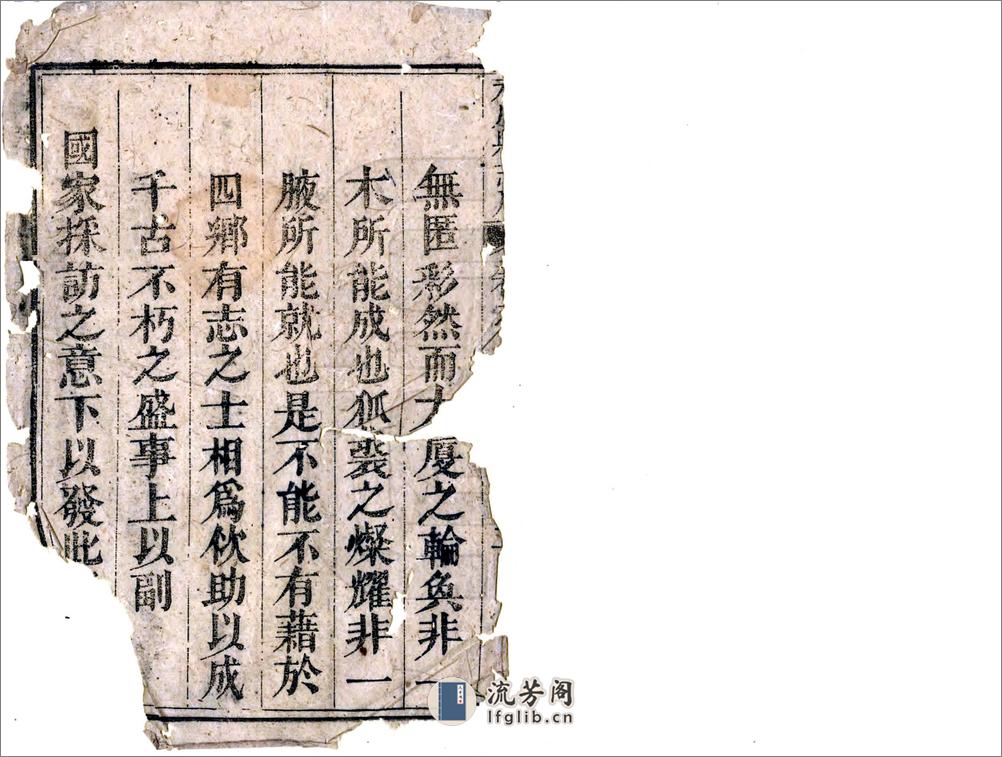 無匿彩然而大厦之輪奐非一
木所能成也狐裘之燦耀非一
腋所能就也是不能不有藉於
四鄉有志之士相爲佽助以成
千古不朽之盛事上以副
國家採訪之意下以發此
流芳阁
lfglib.cn